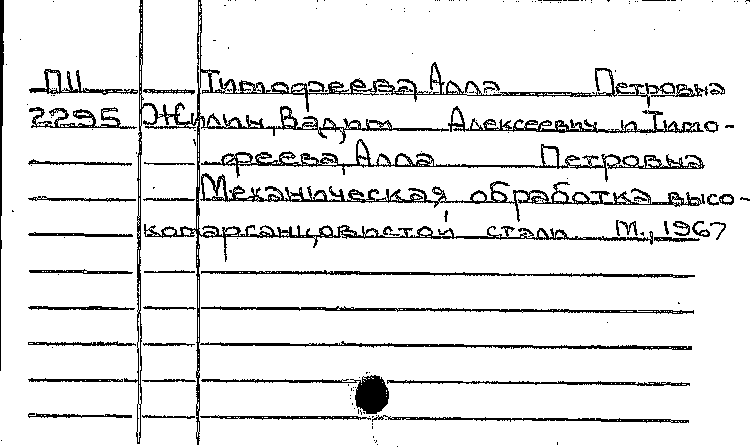 П11 Тимофеева, Алла Петровна
2295 Жилин, Вадим Алексеевич и Тимо-
феева, Алла Петровна
Механическая обработка высо-
комарганцовистой стали. М., 1967